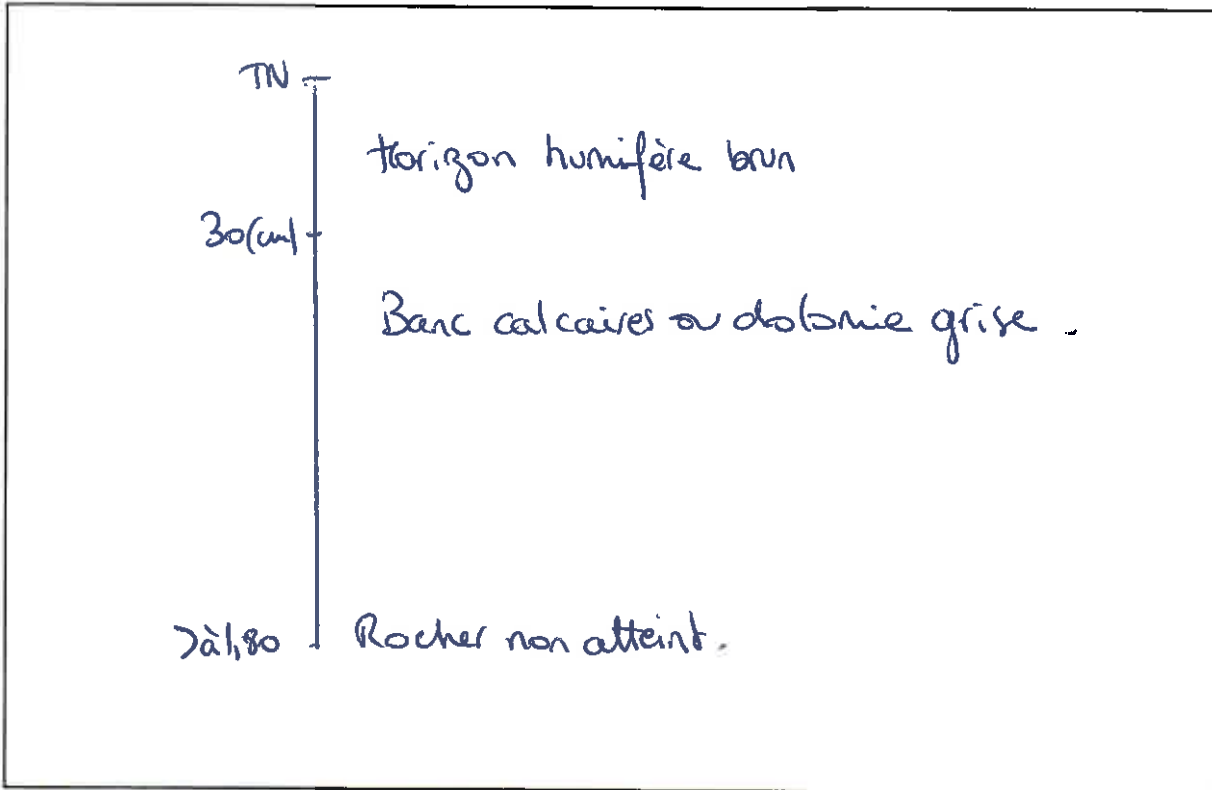 TN
Horizon humifère brun
30(cm)
Banc calcaires ou dolomie grise.
>à1,80 Rocher non atteint.